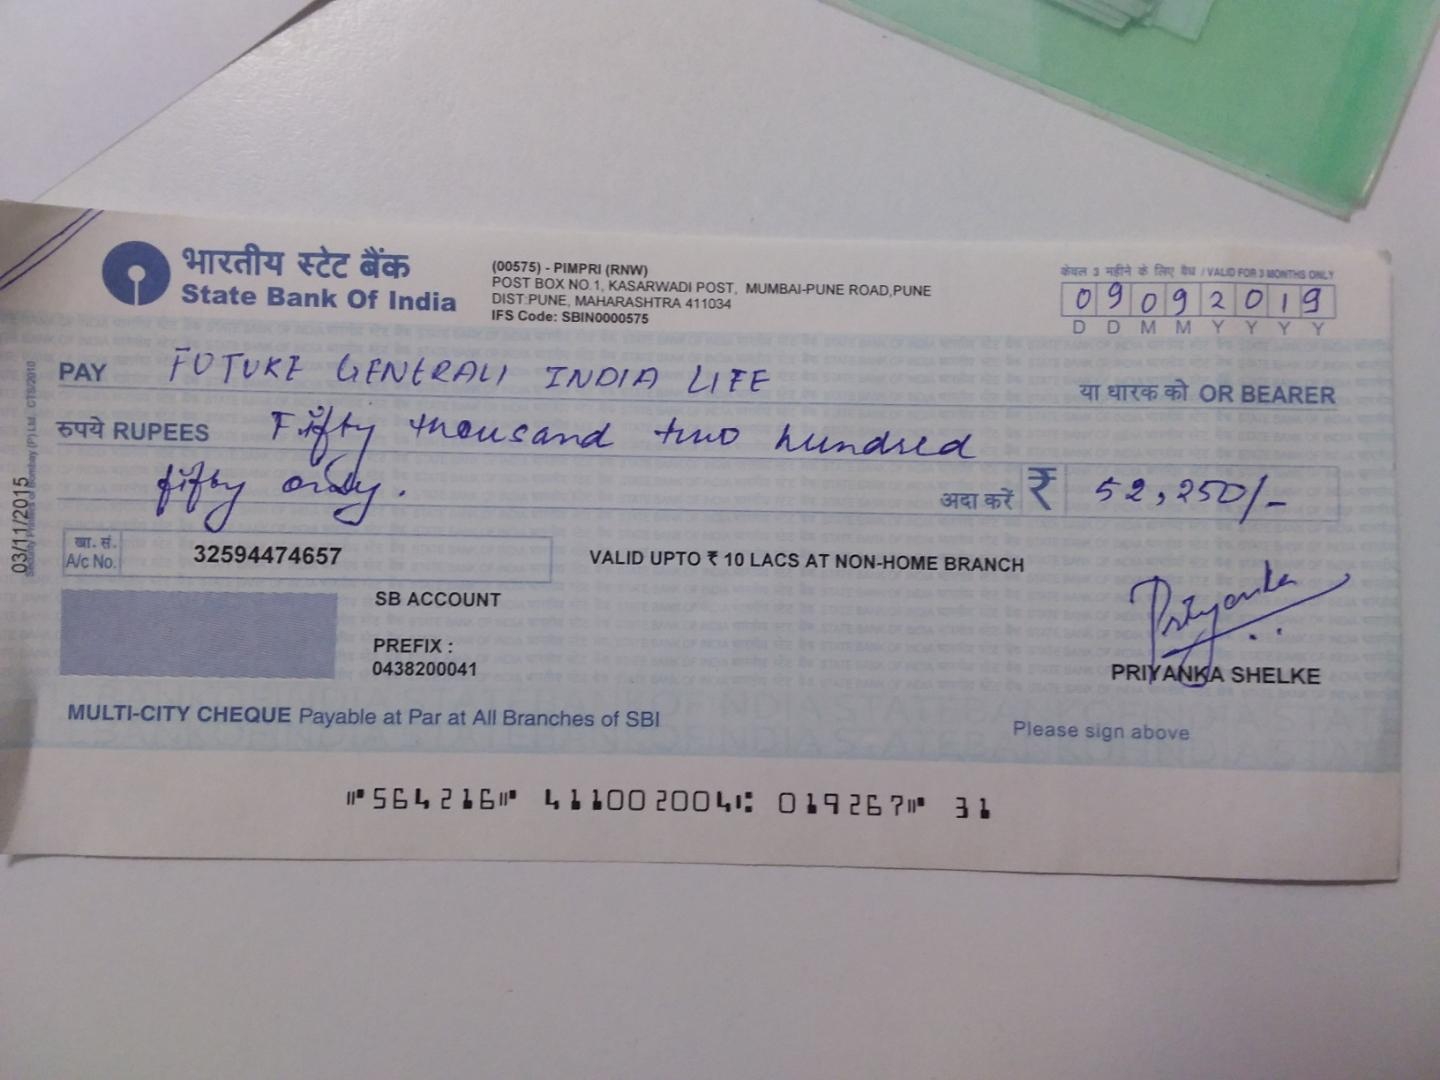 भारतीय स्टेट बैंक
State Bank Of India
(00575) - PIMPRI (RNW)
POST BOX NO.1, KASARWADI POST, MUMBAI-PUNE ROAD,PUNE
DIST:PUNE, MAHARASHTRA 411034
IFS Code: SBIN0000575
केवल 3 महीने के लिए वैध / VALID FOR 3 MONTHS ONLY
09092019
D D M M Y Y Y Y
PAY FUTURE GENERALI INDIA LIFE
या धारक को OR BEARER
रुपये RUPEES Fifty thousand two hundred
fifty only.
अदा करें ₹ 52,250/-
03/11/2015
खा. सं.
A/c No. 32594474657
VALID UPTO ₹ 10 LACS AT NON-HOME BRANCH
SB ACCOUNT
PREFIX :
0438200041
Priyanka
PRIYANKA SHELKE
MULTI-CITY CHEQUE Payable at Par at All Branches of SBI
Please sign above
⑈564216⑈ 411002004⑆ 019267⑈ 31